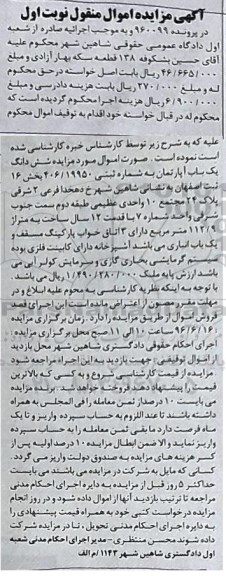 آگهی مزایده اموال منقول نوبت اول
در پرونده ۹۶۰۰۹۹ و به موجب اجرائیه صادره از شعبه
اول دادگاه عمومی حقوقی شاهین شهر محکوم علیه
آقای حسین بشکوفه ۱۳۸ قطعه سکه بهار آزادی و مبلغ
۴۶/۶۶۵/۰۰۰ ریال بابت اصل خواسته در حق محکوم
له و مبلغ ۲۷۰/۰۰۰ ریال بابت هزینه دادرسی و مبلغ
۶/۹۰۰/۰۰۰ ریال هزینه اجرا محکوم گردیده است که
محکوم له در قبال خواسته خود اقدام به توقیف اموال محکوم
علیه که به شرح زیر توسط کارشناس خبره کارشناسی شده
است نموده است. صورت اموال مورد مزایده شش دانگ
یک باب آپارتمان به شماره ثبتی ۴۰۶/۱۹۹۵۰ بخش ۱۶
ثبت اصفهان به نشانی شاهین شهر خ دهخدا فرعی ۲ شرقی
پلاک ۲۴ مجتمع ۱۰ واحدی عظیمی طبقه دوم سمت جنوب
شرقی واحد شماره ۷ با قدمت ۱۲ سال ساخت به متراژ
۱۱۲/۹ متر مربع دارای ۳ اتاق خواب پارکینگ مسقف و
یک باب انباری می باشد آشپزخانه دارای کابینت فلزی بوده
سیستم گرمایشی بخاری گازی و سرمایش کولر آبی می
باشد ارزش پایه ملک ۱/۴۹۰/۲۸۰/۰۰۰ ریال می باشد.
با توجه به اینکه نظریه کارشناسی به محوم علیه ابلاغ و در
مهلت مقرر مصون از اعتراض مانده است این اجرای قصد
فروش اموال از طریق مزایده را دارد. زمان برگزاری مزایده
۹۶/۶/۱۶ ساعت ۱۰ الی ۱۱ صبح محل برگزاری مزایده :
اجرای احکام حقوقی دادگستری شاهین شهر محل بازدید
از اموال توقیفی : جهت بازدید به این اجراء مراجعه شود
مزایده از قیمت کارشناسی شروع و به کسی که بالاترین
قیمت را پیشنهاد دهد فروخت خواهد شد. برنده مزایده
می بایست ۱۰ درصد از ثمن معامله را فی المجلس به همراه
داشته باشند تا عند اللزوم به حساب سپرده واریز و تا یک
ماه فرصت دارد ما بقی ثمن معامله را به حساب سپرده
واریز نماید و الا ضمن ابطال مزایده ۱۰ درصد اولیه پس از
کسر هزینه های مزایده به صندوق دولت واریز می گردد.
کسانی که مایل به شرکت در مزایده می باشند می بایست
حداکثر ۵ روز قبل از مزایده به دایره اجرای احکام مدنی
مراجعه تا ترتیب بازدید آنها از اموال داده شود و در روز انجام
مزایده درخواست کتبی خود به همراه قیمت پیشنهادی را
به دایره اجرای احکام مدنی تحویل، تا در مزایده شرکت
داده شوند محسن منتظری- مدیر اجرای احکام مدنی شعبه
اول دادگستری شاهین شهر ۱۱۴۳/م الف